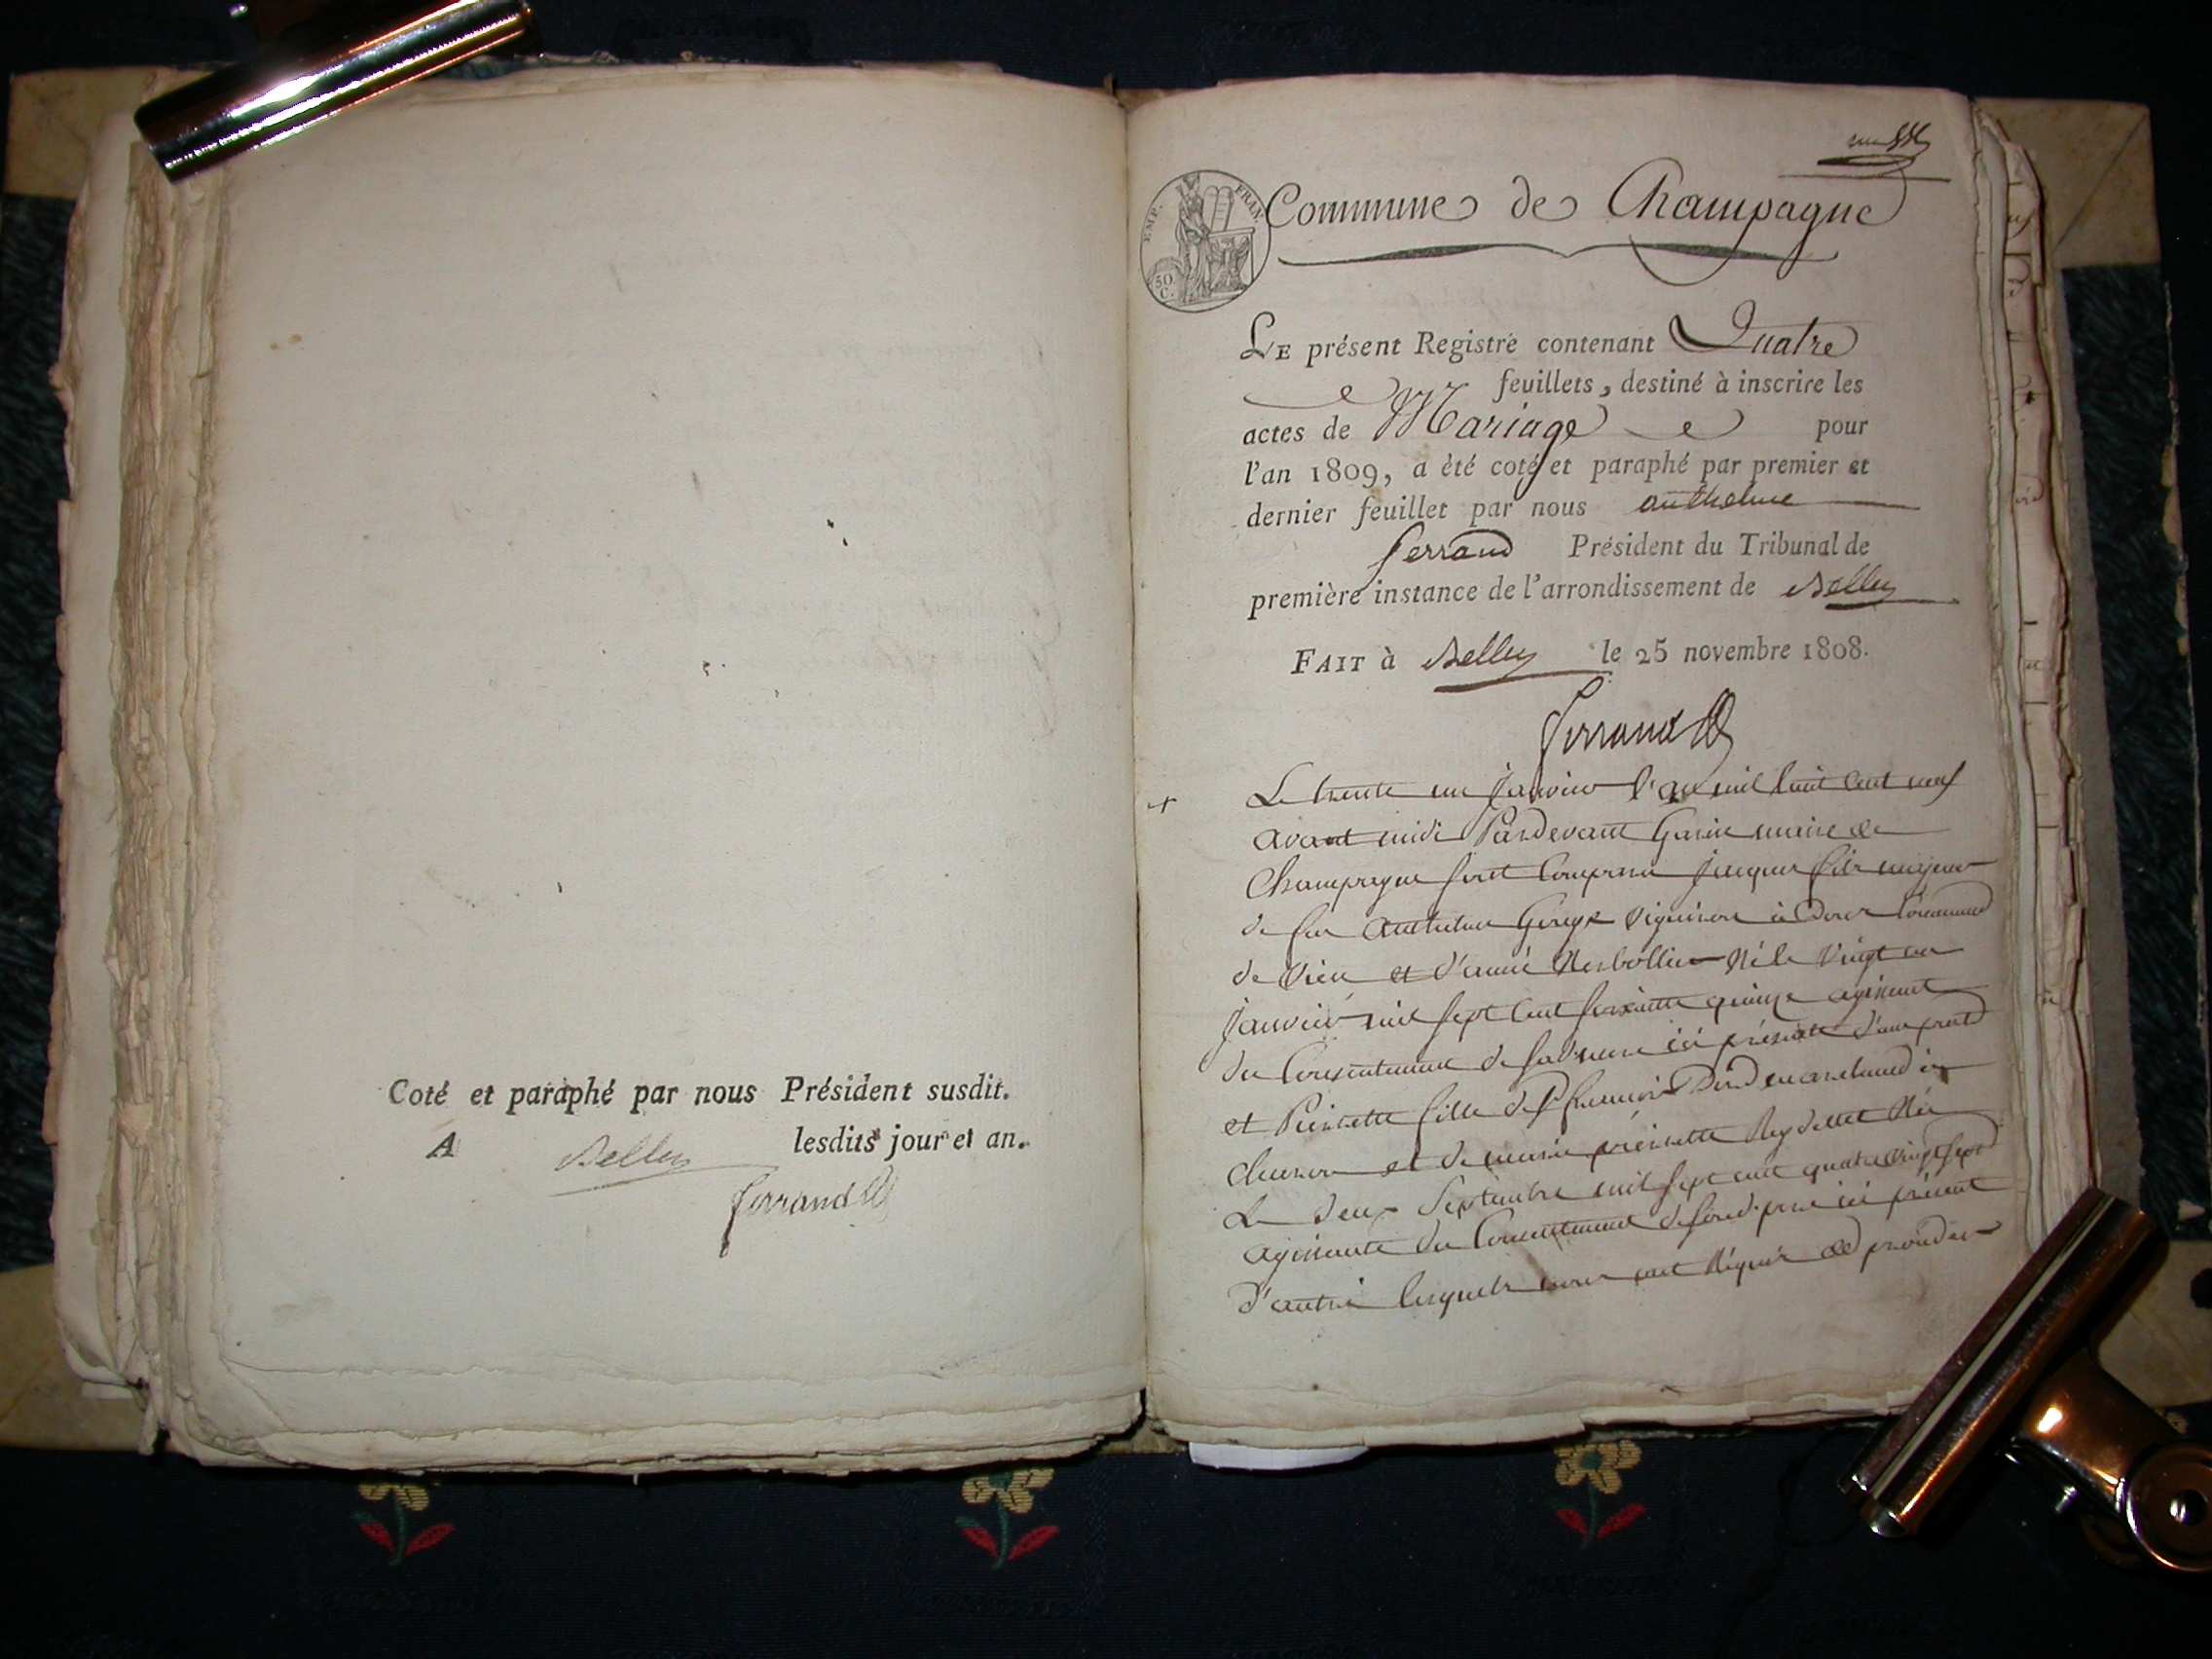 Coté et paraphé par nous Président susdit.
A Belley lesdits jour et an.
Ferrand
EMP. FRAN.
50
C.
Commune de Champagne
LE présent Registre contenant Quatre
feuillets, destiné à inscrire les
actes de Mariage pour
l'an 1809, a èté coté et paraphé par premier et
dernier feuillet par nous anthelme
ferrand Président du Tribunal de
première instance de l'arrondissement de Belley
FAIT à Belley le 25 novembre 1808.
Ferrand
Le trente un janvier l'an mil huit cent neuf
avant midi Pardevant maire de
Champagne sont Comparu jacques fils majeur
de feu anthelme vigneron à
de vieu et d'anne Né le vingt un
janvier mil sept cent soixante quinze agissant
du Consentement de sad. mere ici présente d'une part
et Pierrette fille de françois marchand à
et de marie pierrette Reydellet Née
Le deux Septembre mil sept cent quatre vingt sept
agissante du Consentement de sond. pere ici présent
d'autre lesquels nous ont Requis de proceder